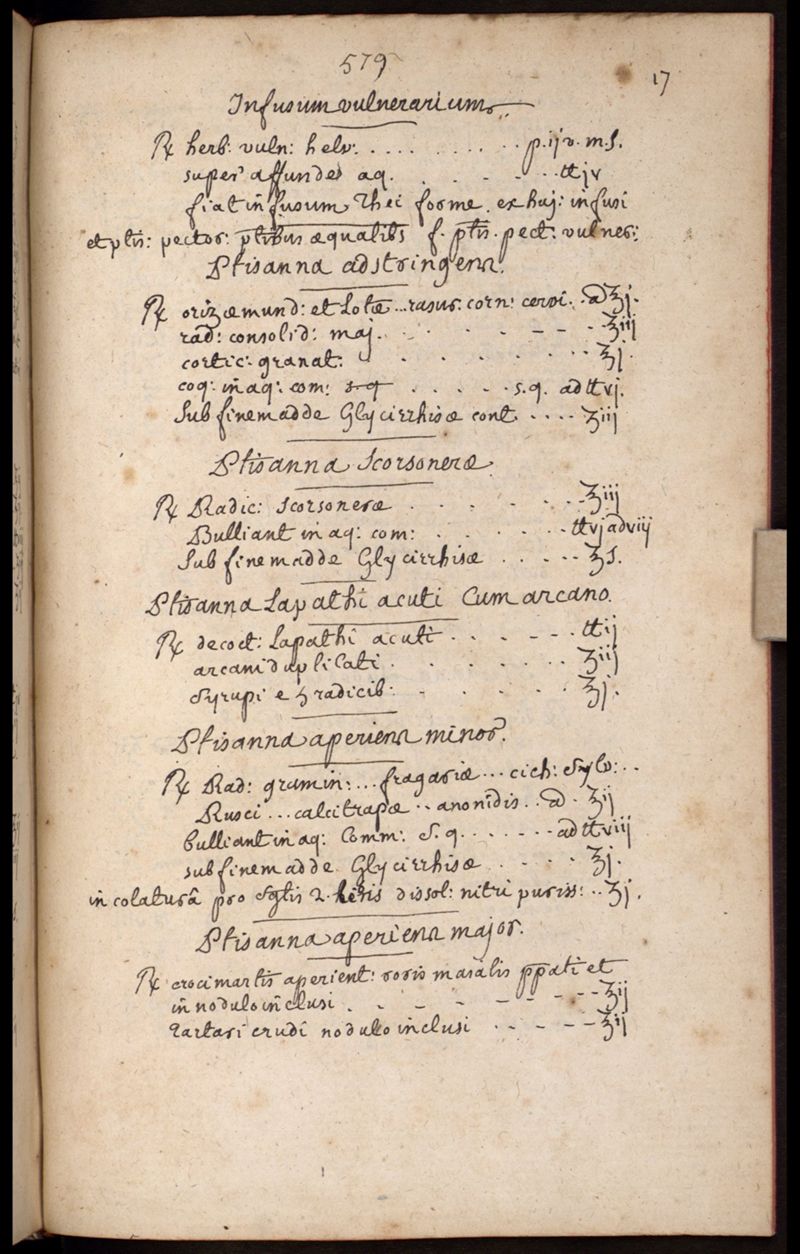 579
17
Infusum vulnerarium.
℞ herb: vuln: helv: . . . . . . . . . p. ijv. m. s.
super affunde aq. . . . . . . ℔jv
fiat infusum Thei forme. ex huj: infusi
et ptis: pector: ptibus æqualibs f. ptis. pect: vulner:
Ptisanna adstringens.
℞ orizæ mund: et Lotæ ... rasur: corn: cervi. . a ʒj.
rad: consolid: maj. . . . . - - . ʒiij
cortic: granat: . . . . . . . . ʒj.
coq: in aq: com: s q . . . . . s. q. ad ℔vj.
Sub finem adde Glycirrhisæ cont. . . . . ʒiij
Ptisanna Scorsoneræ.
℞ Radic: Scorsoneræ . . . . . . ʒiij
Bulliant in aq: com: . . . . . ℔vj ad viij
Sub finem adde Glycirrhisæ . . . . . ʒs.
Ptisanna Lapathi acuti Cum arcano.
℞ decoct: Lapathi acuti . . . . - - . ℔ij
arcani duplicati . . . . . . . ʒiij
Syrupi e 5 radicib: . . . . . ʒj.
Ptisanna aperiens minor.
℞ Rad: gramin: ... fragariæ ... cich: Sylv: . .
Rusci ... calcitrapæ .. anonidis . . a . ʒij
bulliant in aq: Comm: S. q. . . . . . . ad ℔viij
sub finem adde Glycirrhisæ . . . . . ʒj.
in colaturâ pro Sglis 2. libris dissol: nitri puriss: . . ʒj.
Ptisanna aperiens major.
℞ croci martis aperient: roris maialis ppati et
in nodulo inclusi . . - - - - - - ʒij
Tartari crudi nodulo inclusi . . - - - ʒij